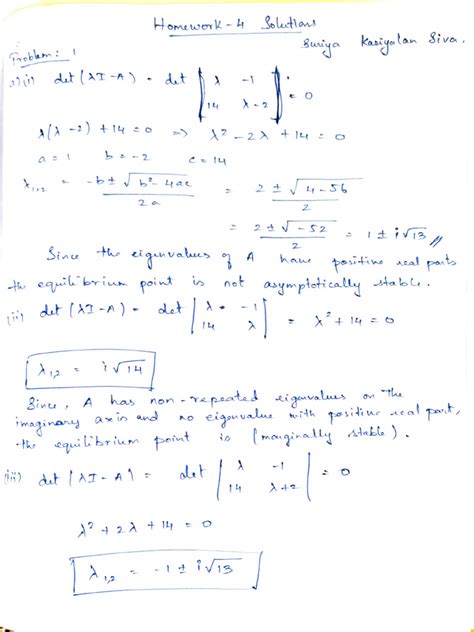 Homework-4 Solutions
Suriya Kasiyalan Siva.
Problem: 1
a)(i) det(λI-A) = det | λ -1 | = 0
14 λ-2
λ(λ-2)+14=0 => λ²-2λ+14=0
a=1 b=-2 c=14
λ1,2 = -b±√b²-4ac / 2a = 2±√4-56 / 2
= 2±√-52 / 2 = 1±i√13 //
Since the eigenvalues of A have positive real parts
the equilibrium point is not asymptotically stable.
(ii) det(λI-A) = det | λ -1 | = λ²+14=0
14 λ
λ1,2 = i√14
Since, A has non-repeated eigenvalues on the
imaginary axis and no eigenvalue with positive real part,
the equilibrium point is (marginally stable).
(iii) det(λI-A) = det | λ -1 | = 0
14 λ+2
λ²+2λ+14=0
λ1,2 = -1±i√13